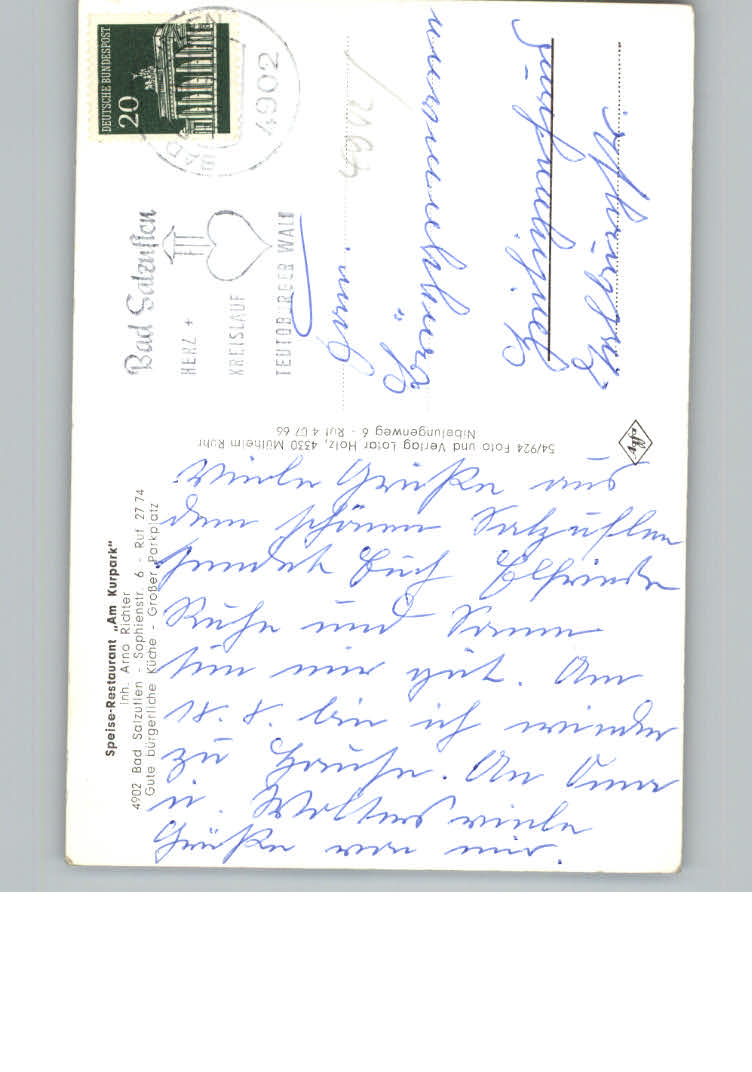 Speise-Restaurant „Am Kurpark"
Inh. Arno Richter
4902 Bad Salzuflen - Sophienstr. 6 - Ruf 27 74
Gute bürgerliche Küche - Großer Parkplatz
Viele Grüße aus
dem schönen Salzuflen
sendet Euch Elfriede
Ruhe und Sonne
tun mir gut. Am
18. 8. bin ich wieder
zu Hause. An Oma
u. Walters viele
Grüße von mir.
54/924 Foto und Verlag Lotar Holz, 4330 Mülheim Ruhr
Nibelungenweg 6 - Ruf 4 07 66
Agfa
DEUTSCHE BUNDESPOST
20
4902
BAD
Bad Salzuflen
HERZ +
KREISLAUF
TEUTOBURGER WALD
Fam.